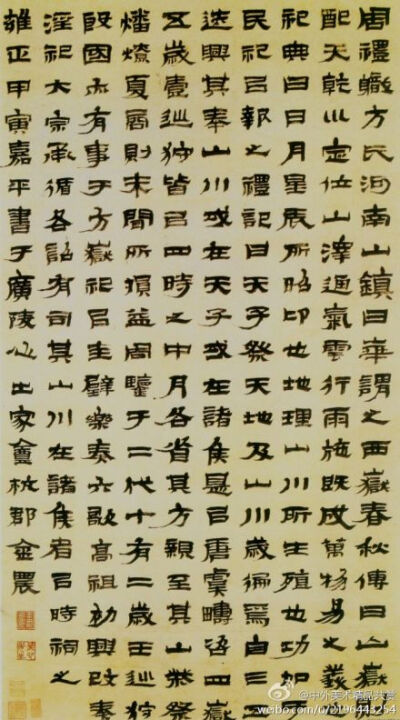 周禮職方氏河南山鎮曰華謂之西嶽春秋傳曰山嶽
配天乾川定位山澤通氣雲行雨施既成萬物易之義
祀典曰日月星辰所昭卬也地理山川所生殖也功加
民祀㠯報之禮記曰天子祭天地及山川歲徧焉自三
迭興其奉山川或在天子或在諸侯是㠯唐虞疇咨四嶽
五歲壹巡狩皆㠯四時之中月各省其方親至其山柴祭
燔燎夏商則未聞所損益周鑒于二代十有二歲王巡狩
殷國亦有事于方嶽祀㠯圭璧樂奏六歌高祖初興改秦
淫祀大宗承循各詔有司其山川在諸侯者㠯時祠之
雍正甲寅嘉平書于廣陵心出家盦杭郡金農
@中外美术精品欣赏
weibo.com/u/2196443254